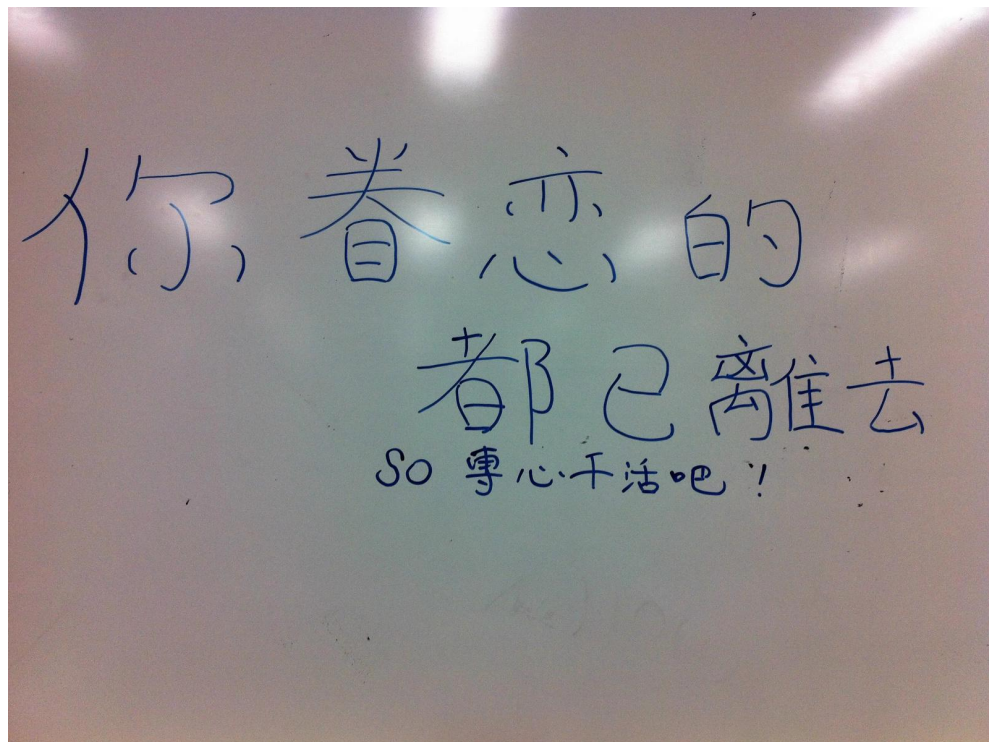 你眷恋的
都已離去
SO 專心干活吧!